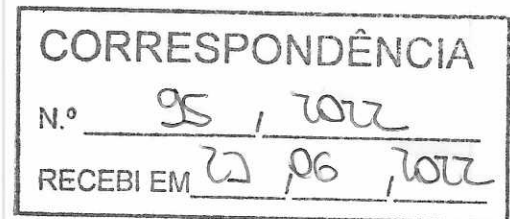 CORRESPONDÊNCIA
N.º 95 / 2022
RECEBI EM / 06 / 2022